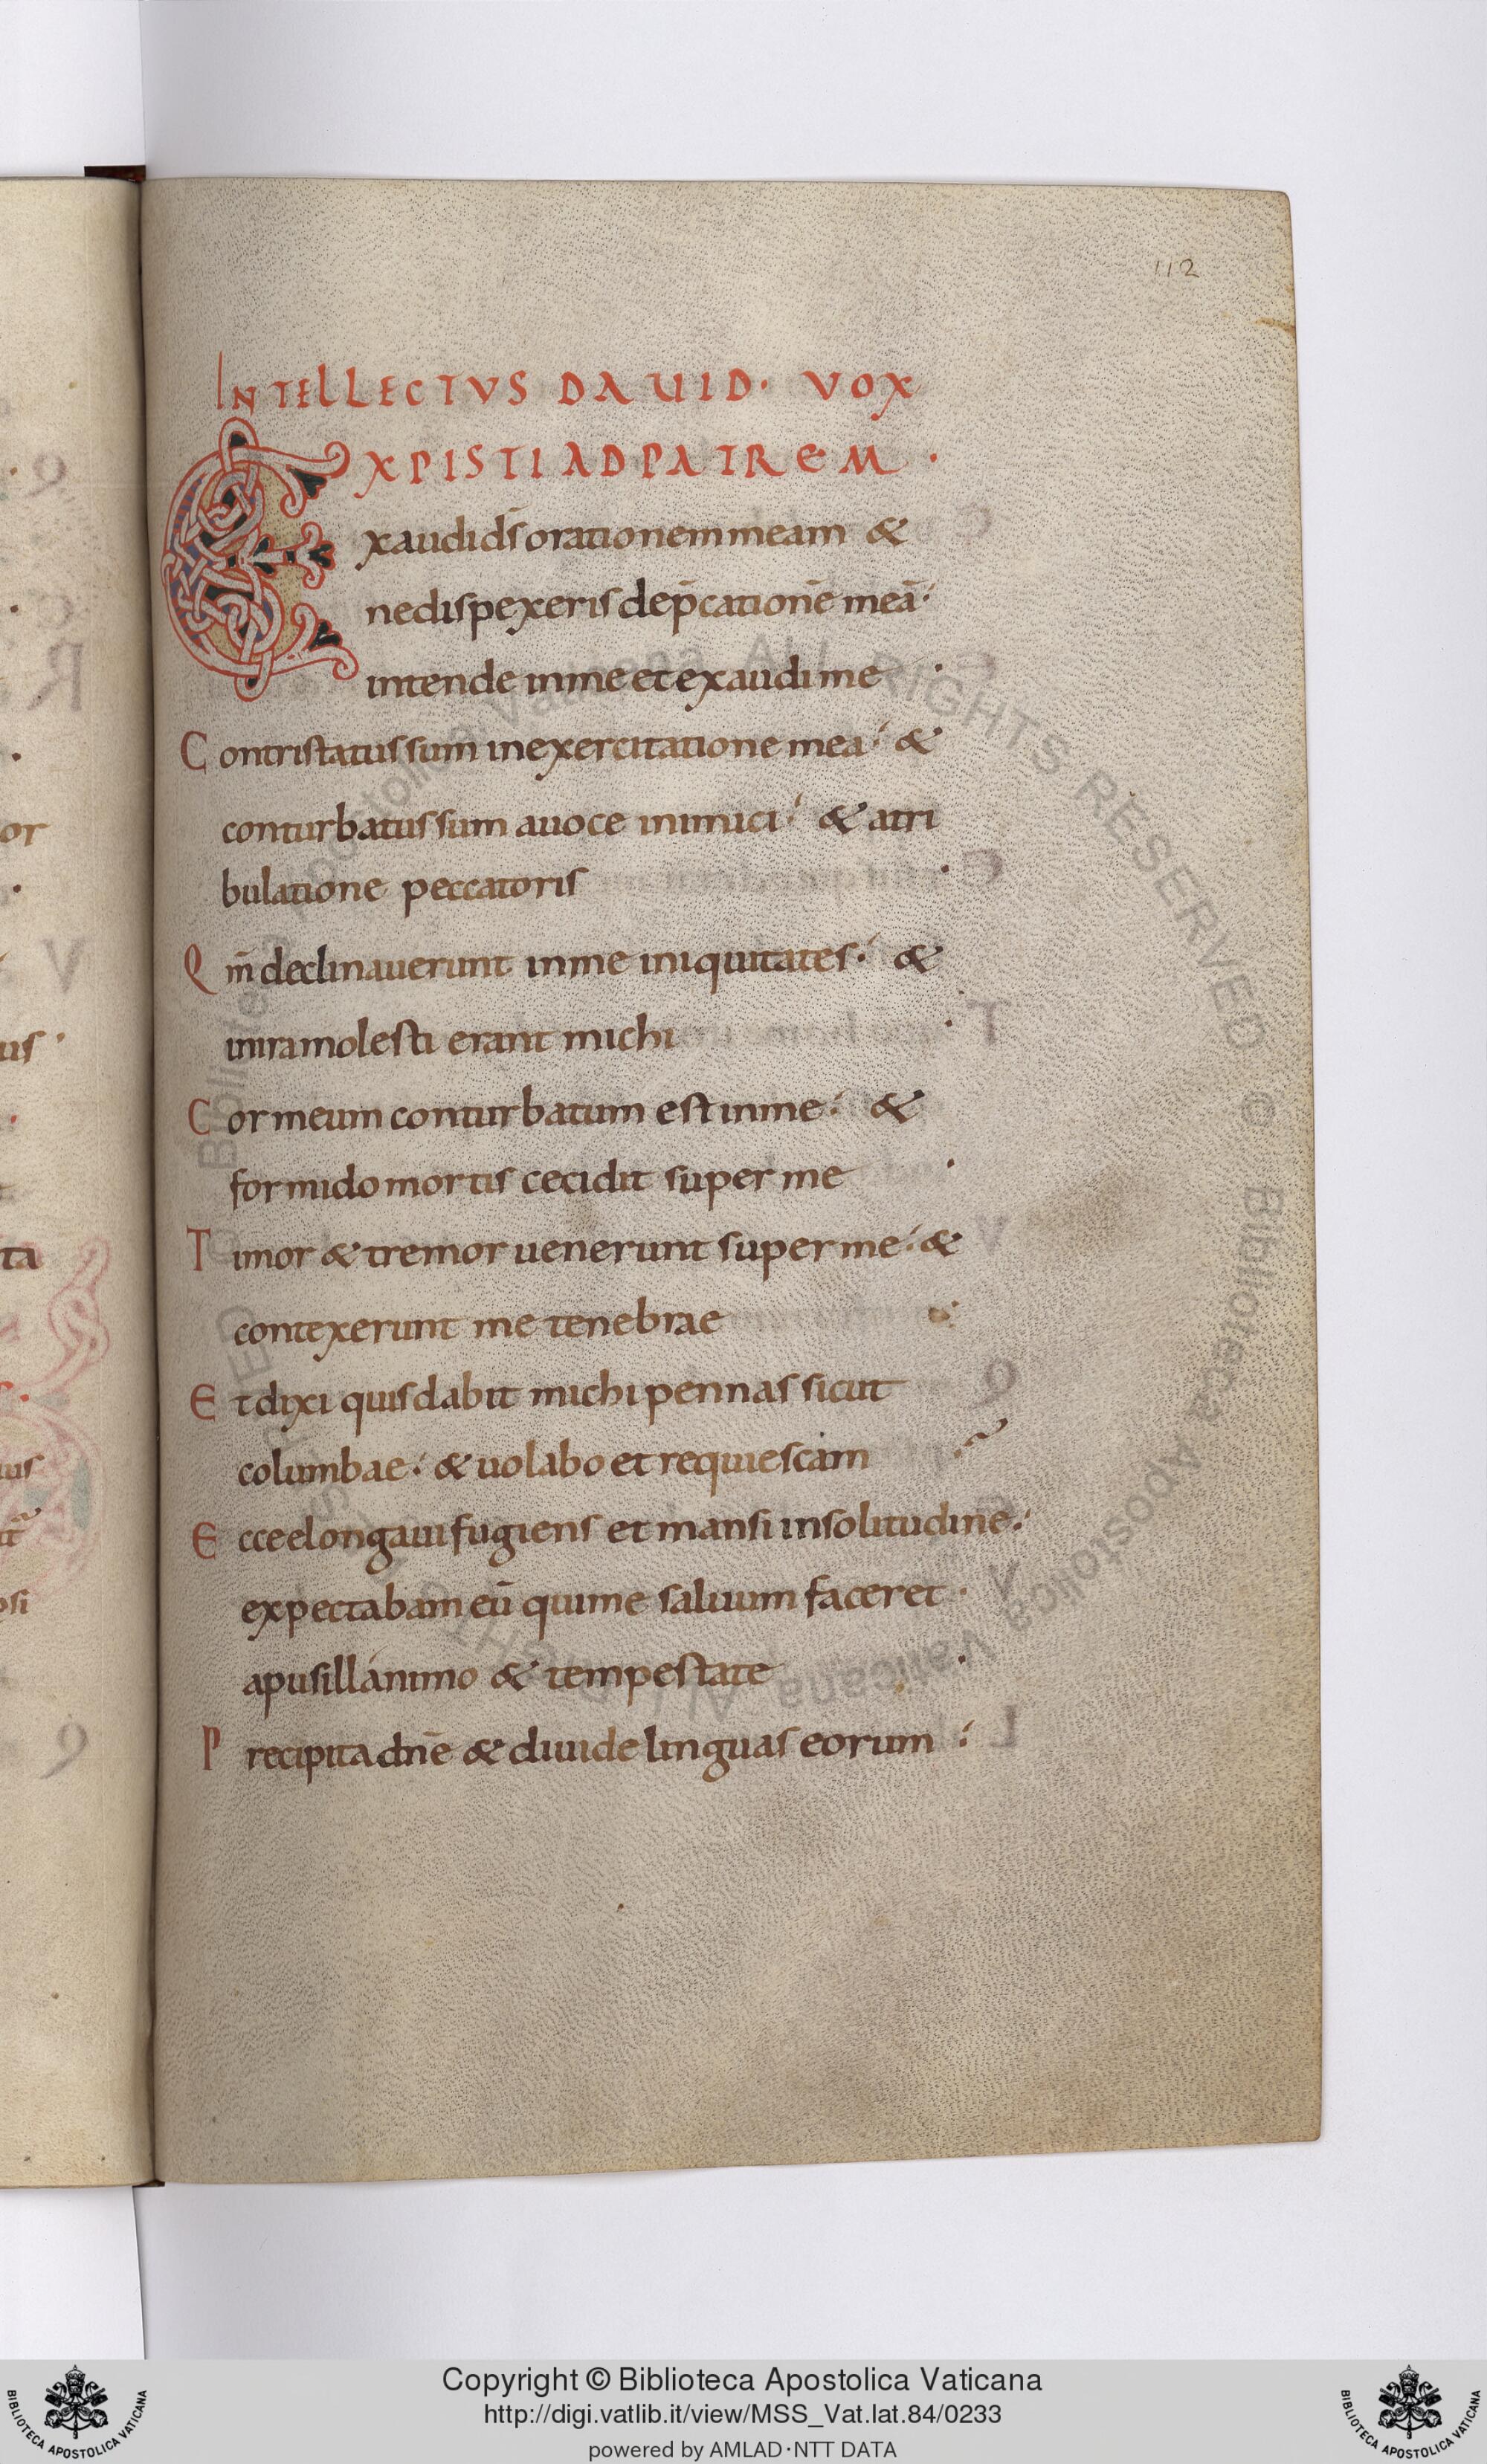 112
INTELLECTVS DAUID· VOX
XPISTI AD PATREM ·
Exaudi ds̄ orationem meam &
ne dispexeris dep̄cationē meā·
intende in me et exaudi me ·
Contristatus sum in exercitatione mea·́ &
conturbatus sum a uoce inimici·́ & a tri
bulatione peccatoris ·
Qm̄ declinauerunt in me iniquitates·́ &
in ira molesti erant michi ·
Cor meum conturbatum est in me·́ &
formido mortis cecidit super me ·
Timor & tremor uenerunt super me·́ &
contexerunt me tenebrae ·
Et dixi quis dabit michi pennas sicut
columbae·́ & uolabo et requiescam ·
Ecce elongaui fugiens et mansi in solitudine·́
expectabam eū qui me saluum faceret ·
a pusillánimo & tempestate ·
Precipita dn̄e & diuide linguas eorum ·́
or
uis ·
ta
uis
osi
Biblioteca Apostolica Vaticana ALL RIGHTS RESERVED © Biblioteca Apostolica Vaticana ALL RIGHTS RESERVED ©
Copyright © Biblioteca Apostolica Vaticana
http://digi.vatlib.it/view/MSS_Vat.lat.84/0233
powered by AMLAD·NTT DATA
BIBLIOTECA APOSTOLICA VATICANA
BIBLIOTECA APOSTOLICA VATICANA